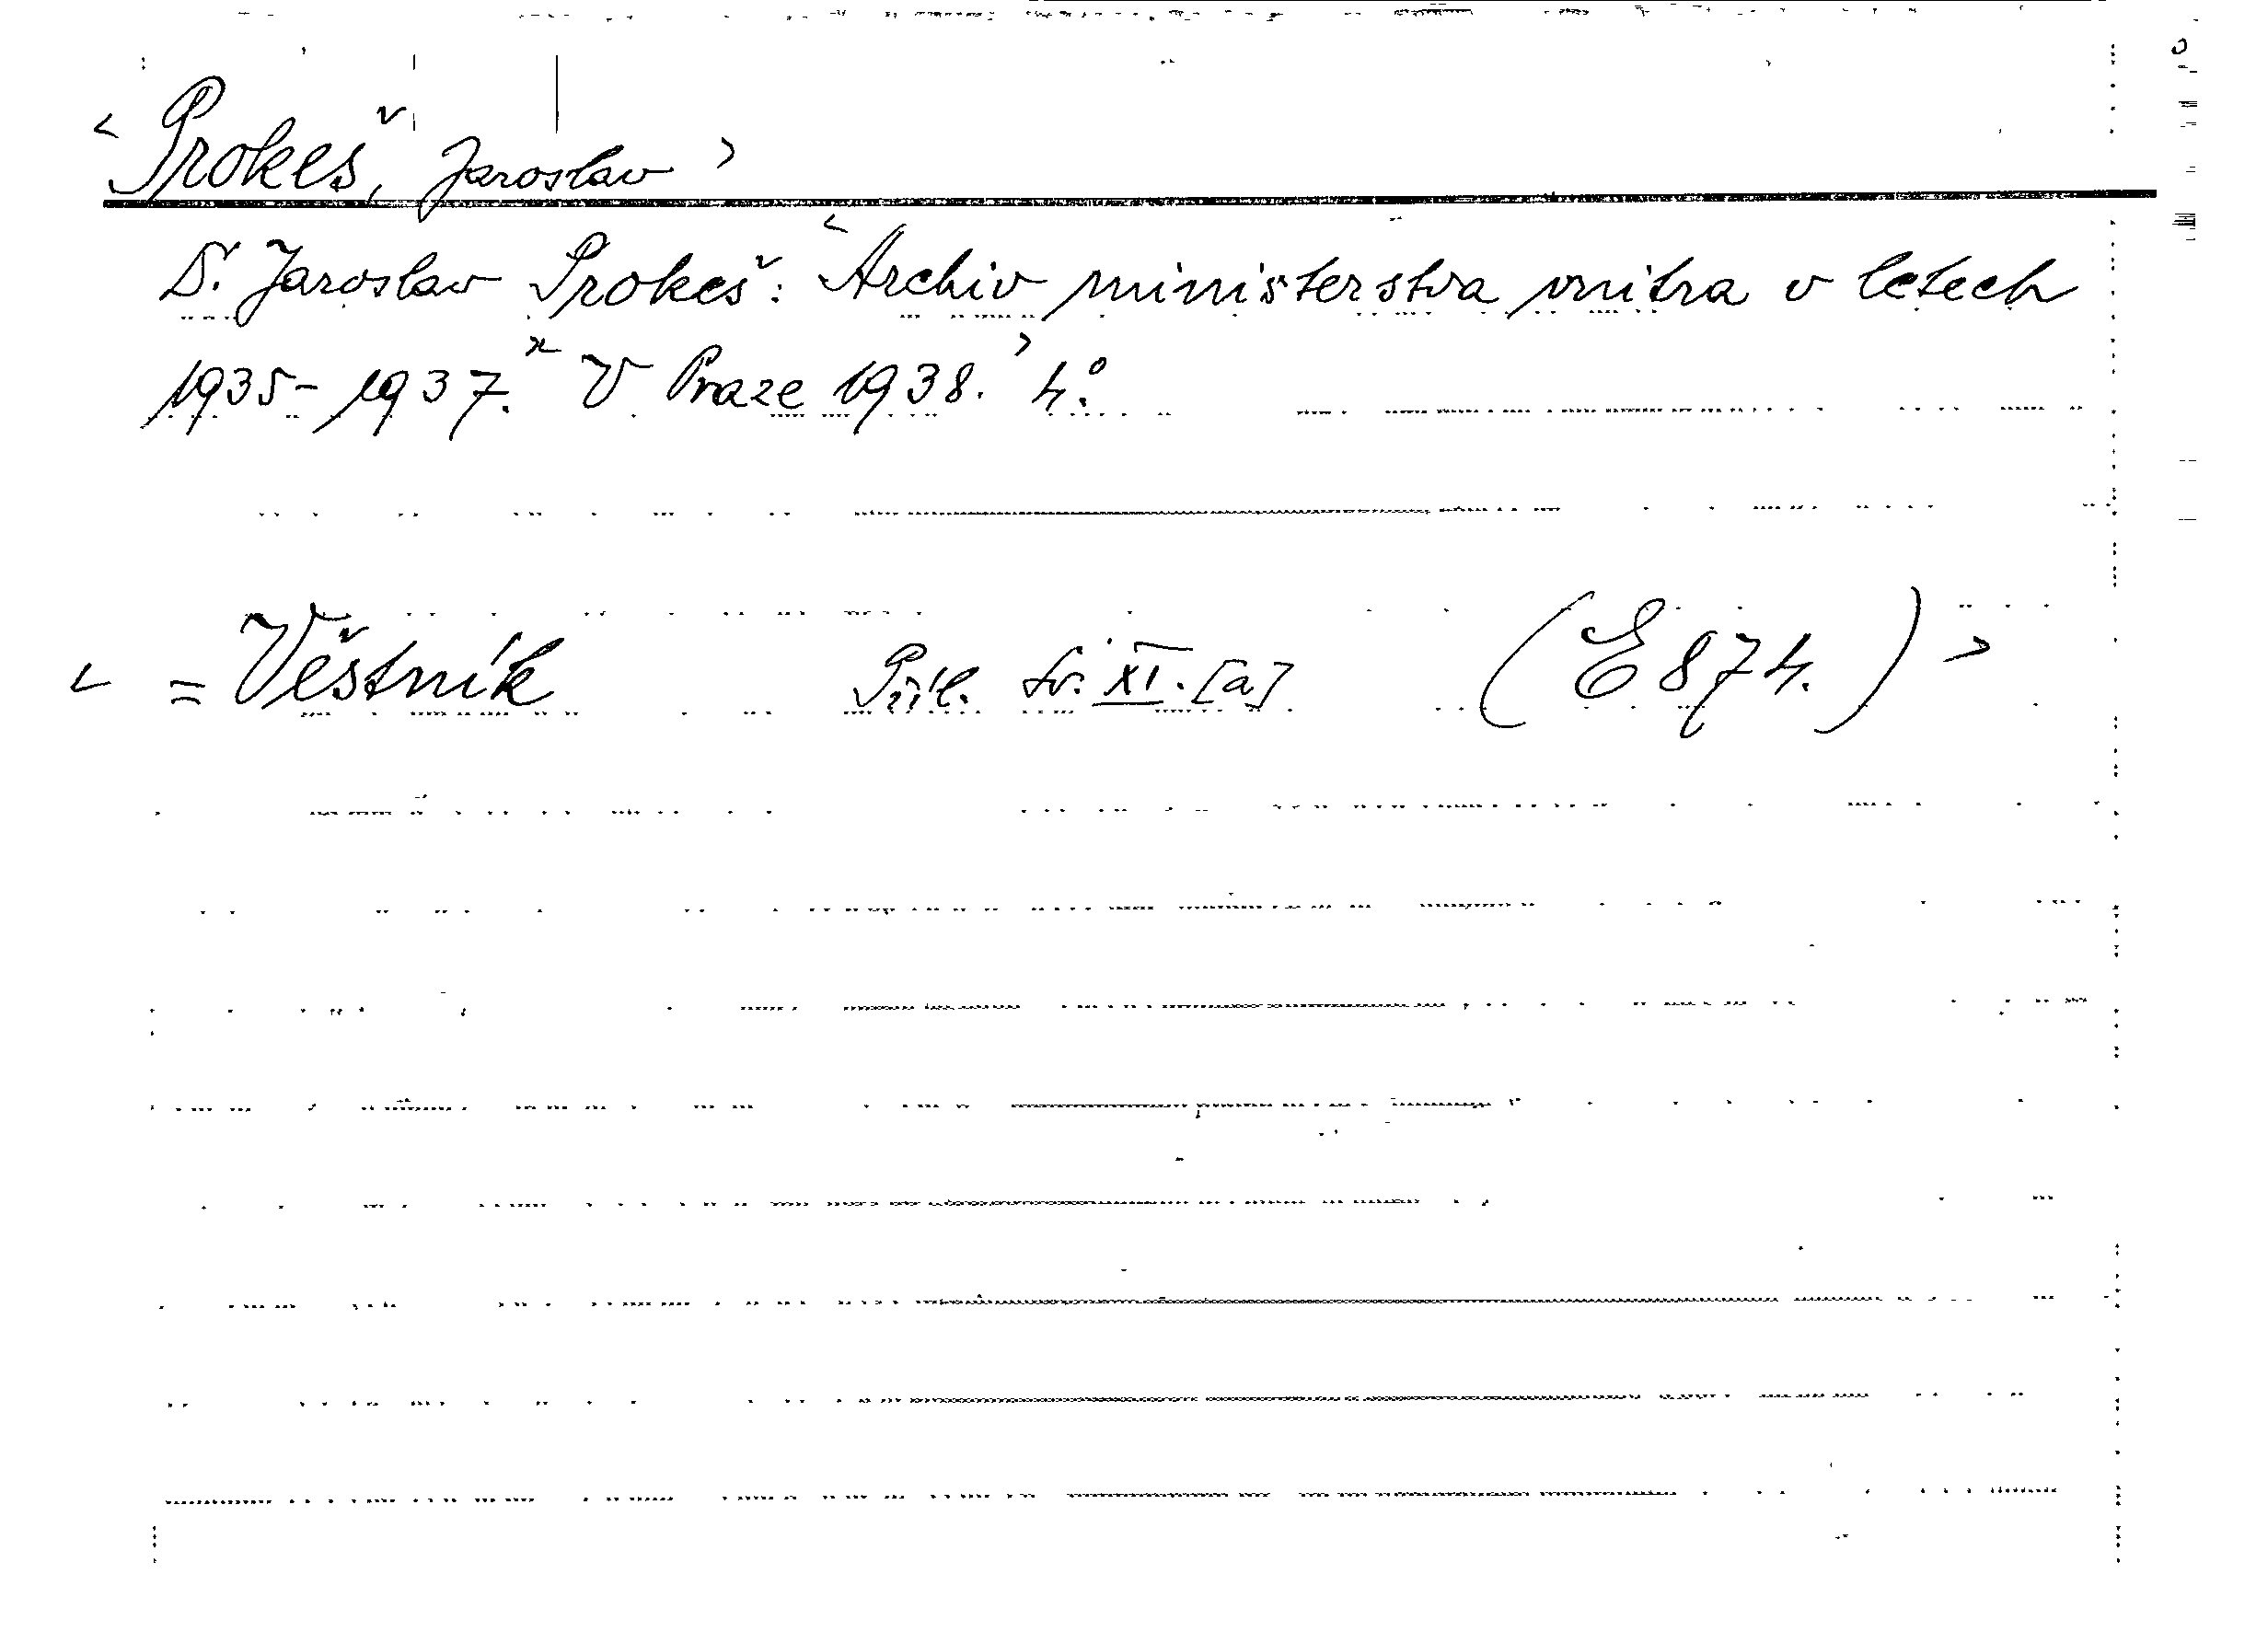 < Prokeš, Jaroslav >
D. Jaroslav Prokeš: < Archiv ministerstva vnitra v letech
1935-1937. V Praze 1938. > 4°.
< = Věstník Příl. sv. XI. [a] (E 874.) >